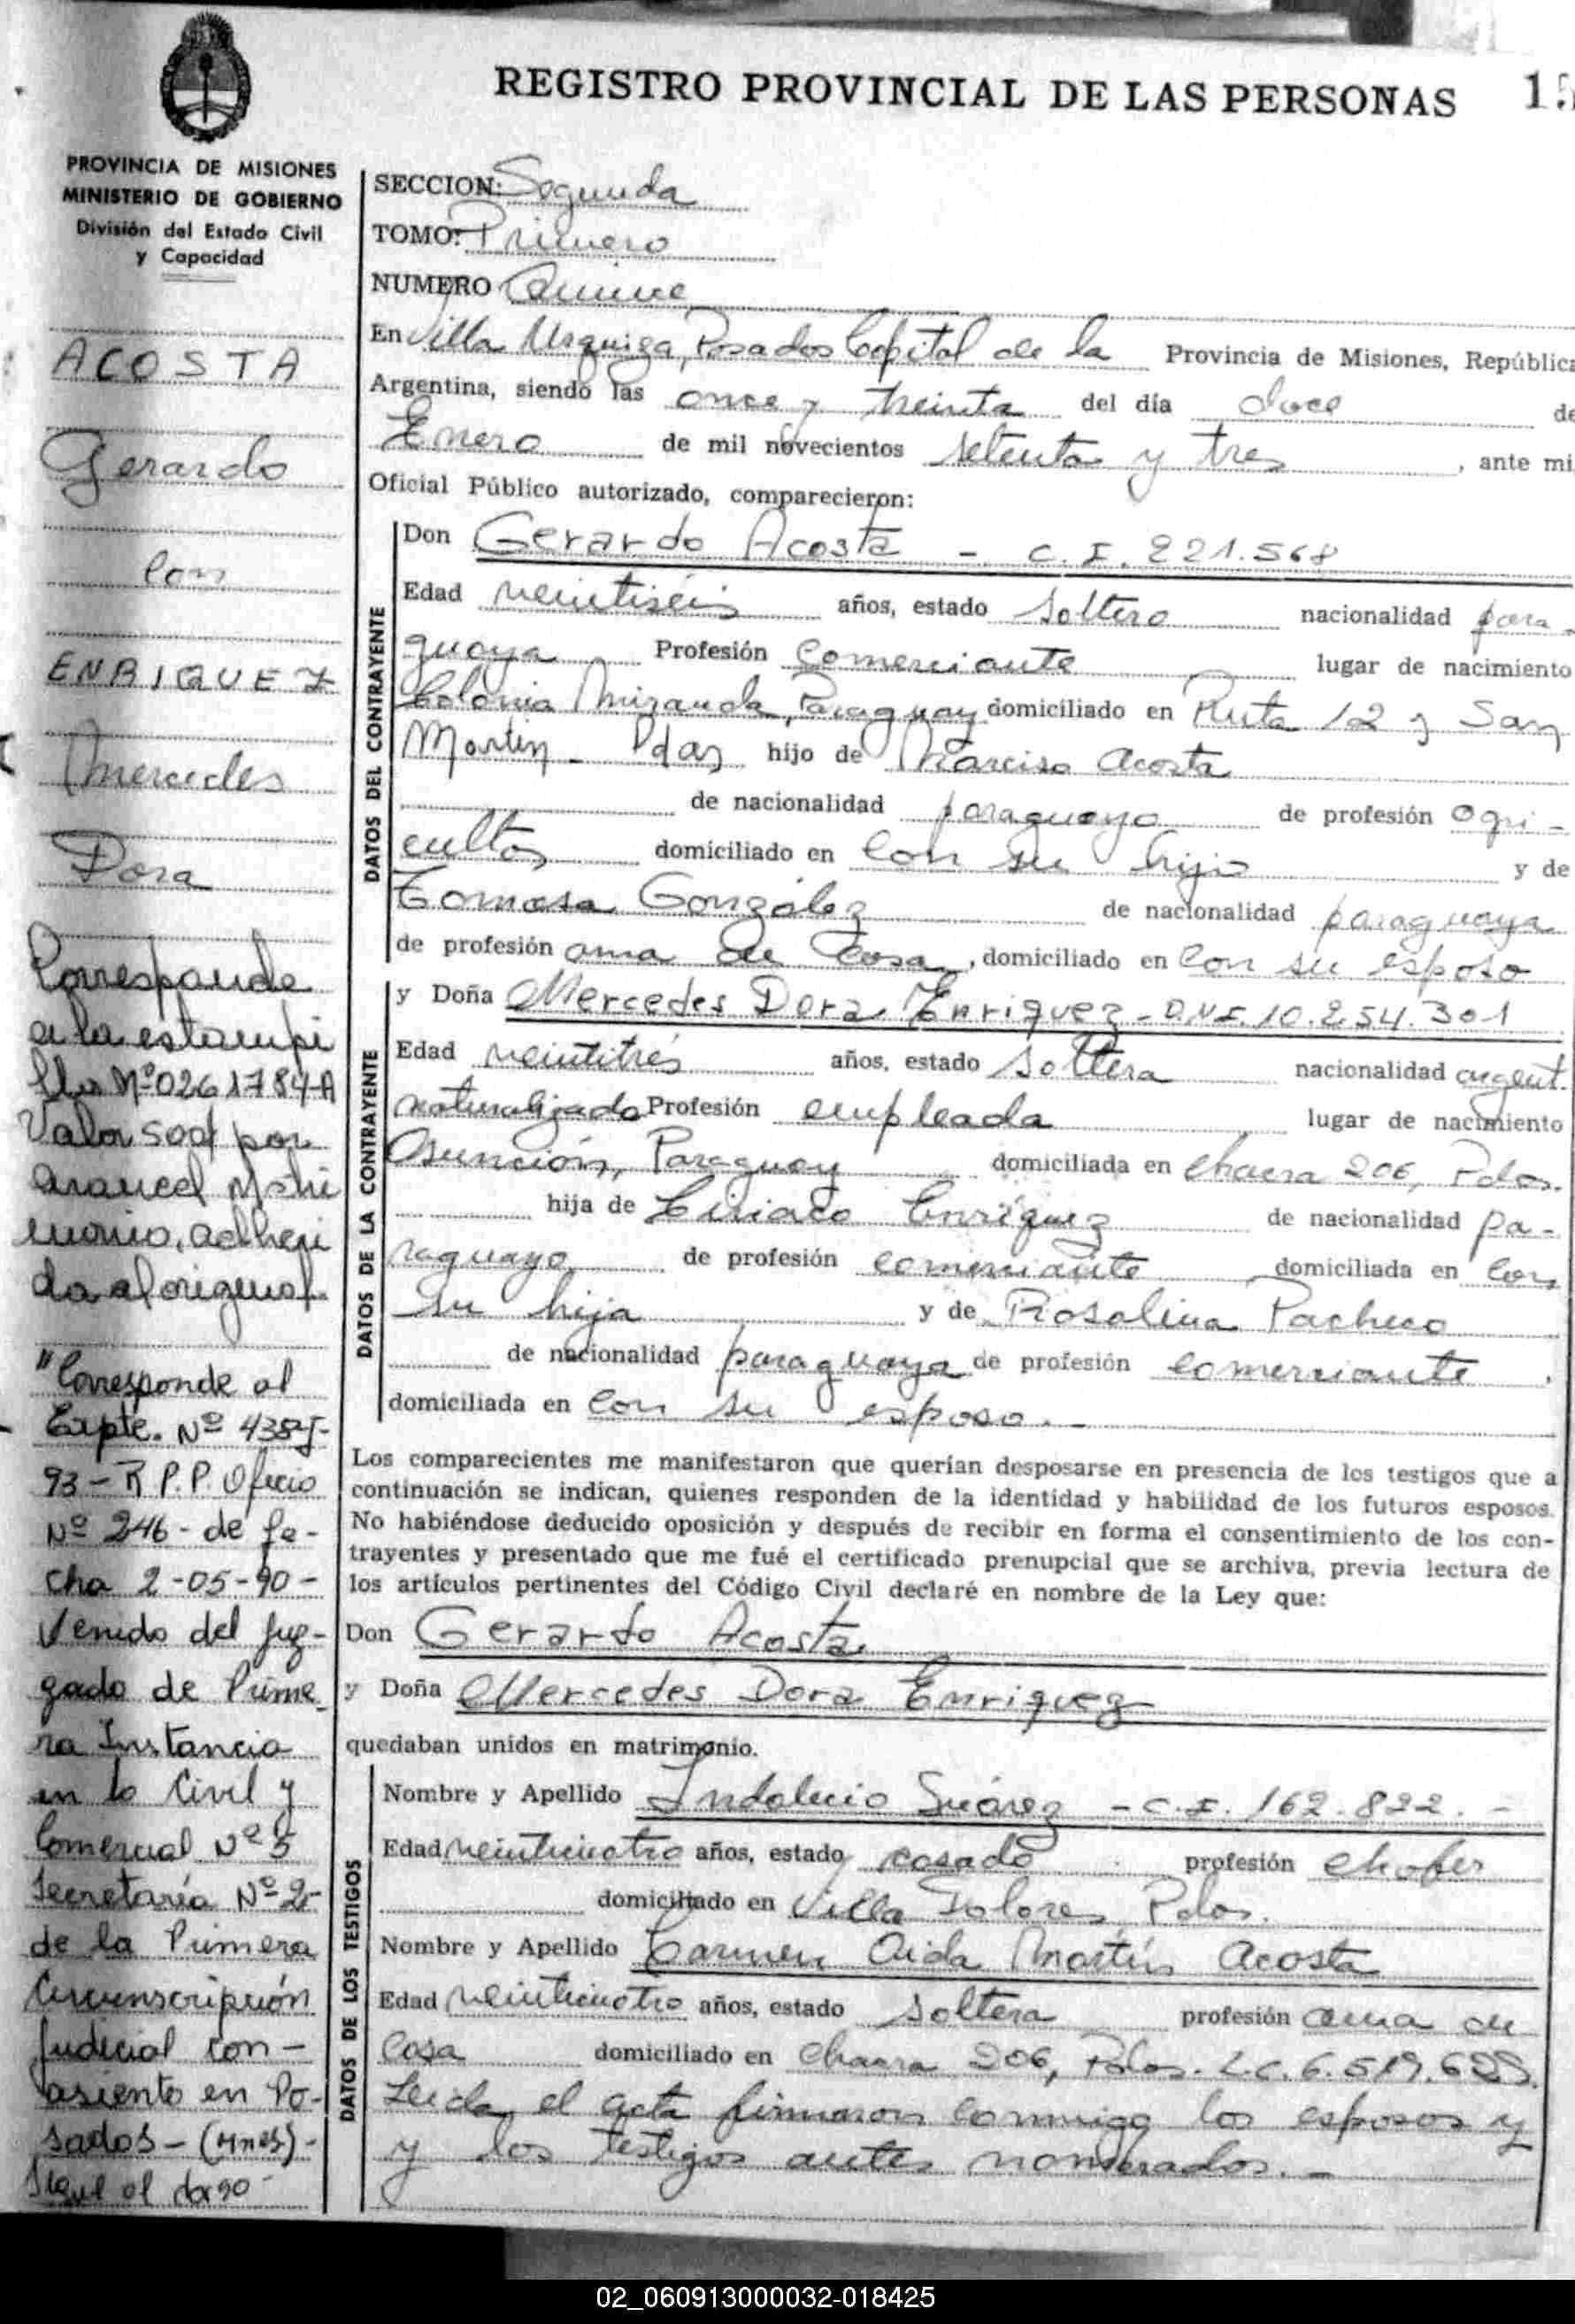 REGISTRO PROVINCIAL DE LAS PERSONAS
PROVINCIA DE MISIONES
MINISTERIO DE GOBIERNO
División del Estado Civil
y Capacidad
ACOSTA
Gerardo
con
ENRIQUEZ
Mercedes
Dora
Corresponde
a la estampi
lla Nº 0261784-A
Valor por
arancel Matri
monio, adheri
da al original.
"Corresponde al
Expte. Nº
93 - R.P.P. Oficio
Nº 246 - de fe-
cha 2-05-90 -
Venido del Juz-
gado de Prime
ra Instancia
en lo Civil y
Comercial Nº 5
Secretaría Nº 2-
de la Primera
Circunscripción
Judicial con -
asiento en Po-
sadas - (Mnes) -
Sigue al dorso -
SECCION: Segunda
TOMO: Primero
NUMERO Quince
En Villa Urquiza, Posadas Capital de la Provincia de Misiones, República
Argentina, siendo las once y treinta del día doce de
Enero de mil novecientos setenta y tres, ante mi,
Oficial Público autorizado, comparecieron:
DATOS DEL CONTRAYENTE
Don Gerardo Acosta - C.I. 221.568
Edad veintiséis años, estado soltero nacionalidad para-
guaya Profesión comerciante lugar de nacimiento
Colonia Miranda, Paraguay domiciliado en Ruta 12 y San
Martín - Pdas hijo de Narciso Acosta
de nacionalidad paraguaya de profesión agri-
cultor domiciliado en con su hijo y de
Tomasa González de nacionalidad paraguaya
de profesión ama de casa, domiciliado en con su esposo
DATOS DE LA CONTRAYENTE
y Doña Mercedes Dora Enriquez - D.N.I. 10.254.301
Edad veintitrés años, estado soltera nacionalidad argent.
naturalizada Profesión empleada lugar de nacimiento
Asunción, Paraguay domiciliada en chacra 206, Pdas.
hija de Ciriaco Enríquez de nacionalidad pa-
raguayo de profesión comerciante domiciliada en con
su hija y de Rosalina Pacheco
de nacionalidad paraguaya de profesión comerciante.
domiciliada en con su esposo. -
Los comparecientes me manifestaron que querían desposarse en presencia de los testigos que a
continuación se indican, quienes responden de la identidad y habilidad de los futuros esposos.
No habiéndose deducido oposición y después de recibir en forma el consentimiento de los con-
trayentes y presentado que me fué el certificado prenupcial que se archiva, previa lectura de
los artículos pertinentes del Código Civil declaré en nombre de la Ley que:
Don Gerardo Acosta
y Doña Mercedes Dora Enriquez
quedaban unidos en matrimonio.
DATOS DE LOS TESTIGOS
Nombre y Apellido Indalecio Suárez - C.I. 162.822. -
Edad veinticuatro años, estado casado profesión chofer
domiciliado en Villa Dolores, Pdas.
Nombre y Apellido Carmen Aida Martín Acosta
Edad veinticuatro años, estado soltera profesión ama de
casa domiciliado en chacra 206, Pdas. L.C.
Leida el acta firmaron conmigo los esposos y
y los testigos antes nombrados. -
02_060913000032-018425